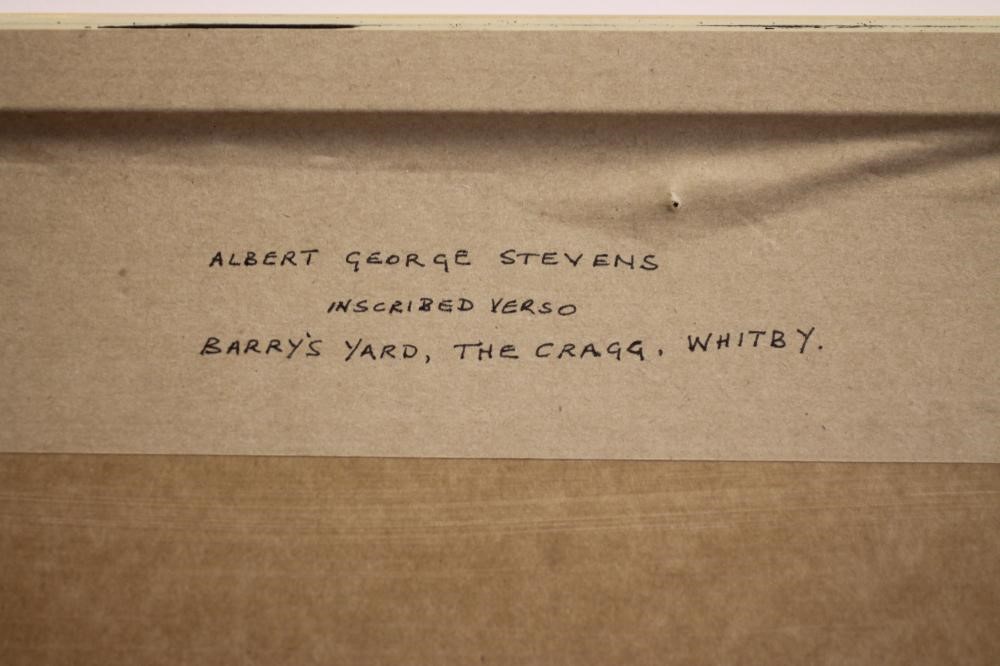 ALBERT GEORGE STEVENS
INSCRIBED VERSO
BARRY'S YARD, THE CRAGG, WHITBY.